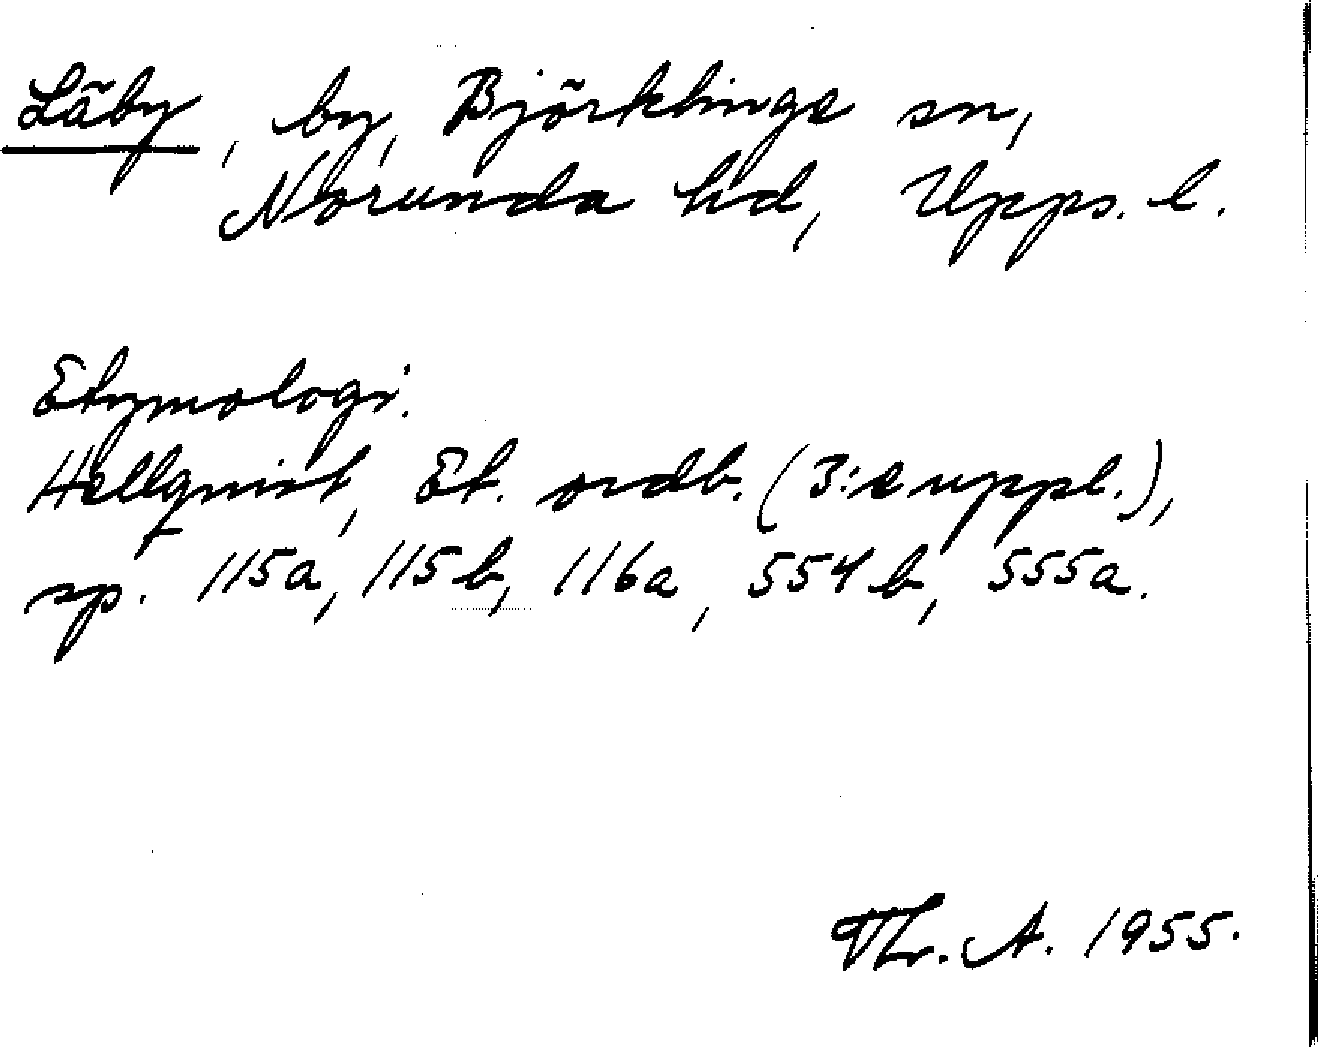 Läby, by, Björklinge sn,
Norunda hd, Upps. l.
Etymologi.
Hellquist, Et. ordb. (3:e uppl.),
sp. 115a, 115b, 116a, 554b, 555a.
Thr. A. 1955.